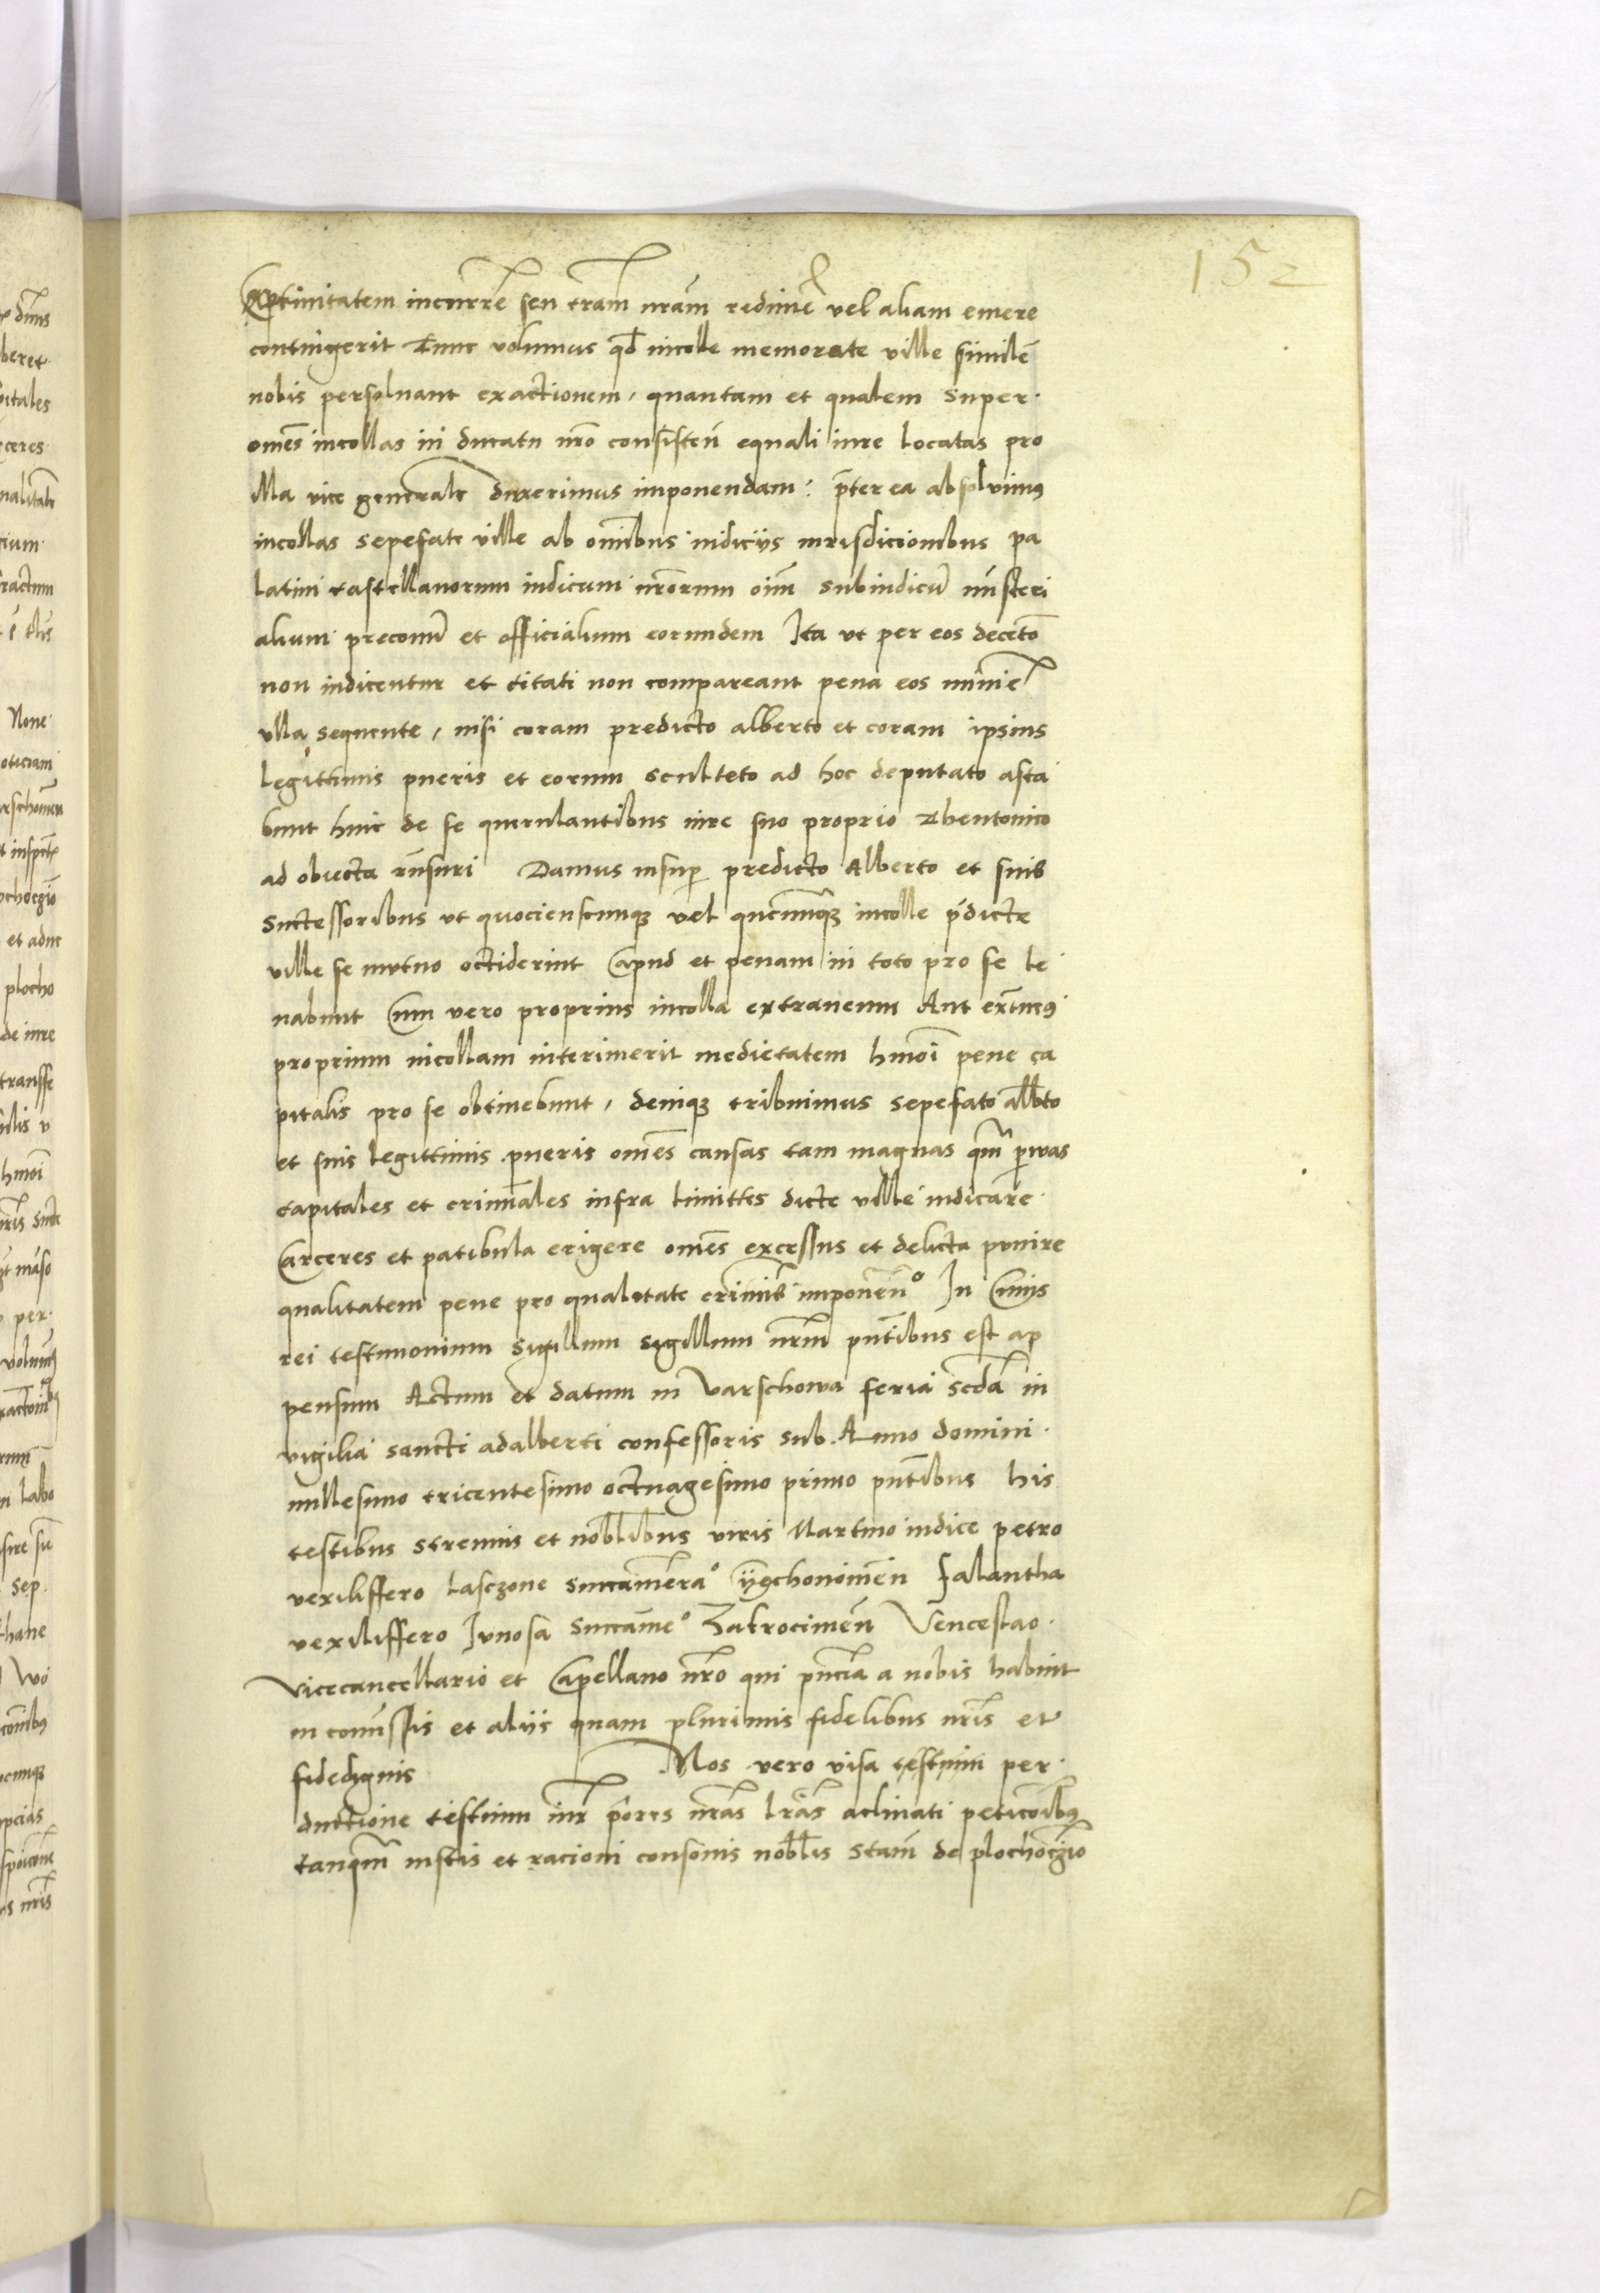 152
Captivitatem incurrē seu trām nrām redimē vel aliam emere
contingerit Tunc volumus qd incolle memorate ville similē
nobis persolvant exactionem, quantam et qualem super
omēs incollas in ducatu nrō consisteñ equali iure locatas pro
illa vice generalr duxerimus imponendam: p̄terea absolvimus
incollas sepefate ville ab om̄ibus iudicijs iurisdicionibus pa
latini castellanorum iudicum nrōrum oīm subiudicū mīsteri
alium preconū et officialium eorundem Ita ut per eos decetō
non iudicentur et citati non compareant pena eos mīmē
ulla sequente, nisi coram predicto alberto et coram ipsius
legittimis pueris et eorum sculteto ad hoc deputato asta
bunt huic de se querulantibus iure suo proprio theutonico
ad obiecta rn̄suri Damus insup predicto Alberto et suis
successoribus ut quocienscunq vel quēcunq incolle p̄dicte
ville se mutuo occiderint Capud et penam in toto pro se le
vabunt Cum vero proprius incolla extraneum Aut ext̄neus
proprium incollam interimerit medietatem hmōi pene ca
pitalis pro se obtinebunt, deniq tribuimus sepefato albto
et suis legittimis pueris omēs causas tam magnas qm̄ pervas
capitales et crimīales infra limittes dicte ville iudicare
Carceres et patibula erigere omēs excessus et delicta punire
qualitatem pene pro qualitate crimīs imponēn° In Cuius
rei testimonium sigillum sigillum nrm̄ pn̄tibus est ap
pensum Actum et datum in varschowa feria scdā in
vigilia sancti adalberti confessoris sub Anno domini
millesimo tricentesimo octuagesimo primo pn̄tibus his
testibus strenuis et noblibus viris Martino iudice petro
vexiliffero lasczone succamera° Czechonomēn falantha
vexiliffero Junosa succame° Zakrocimēn Vencestao
vicecancellario et Capellano nrō qui pn̄cia a nobis habuit
in comīssis et alijs quam plurimis fidelibus nrīs et
fidedignis Nos vero visa testium per
ductione testium iur p̄ores nrās lrās aclinati peticōibus
tanqm̄ iustis et racioni consonis noblis stām de plochoczino